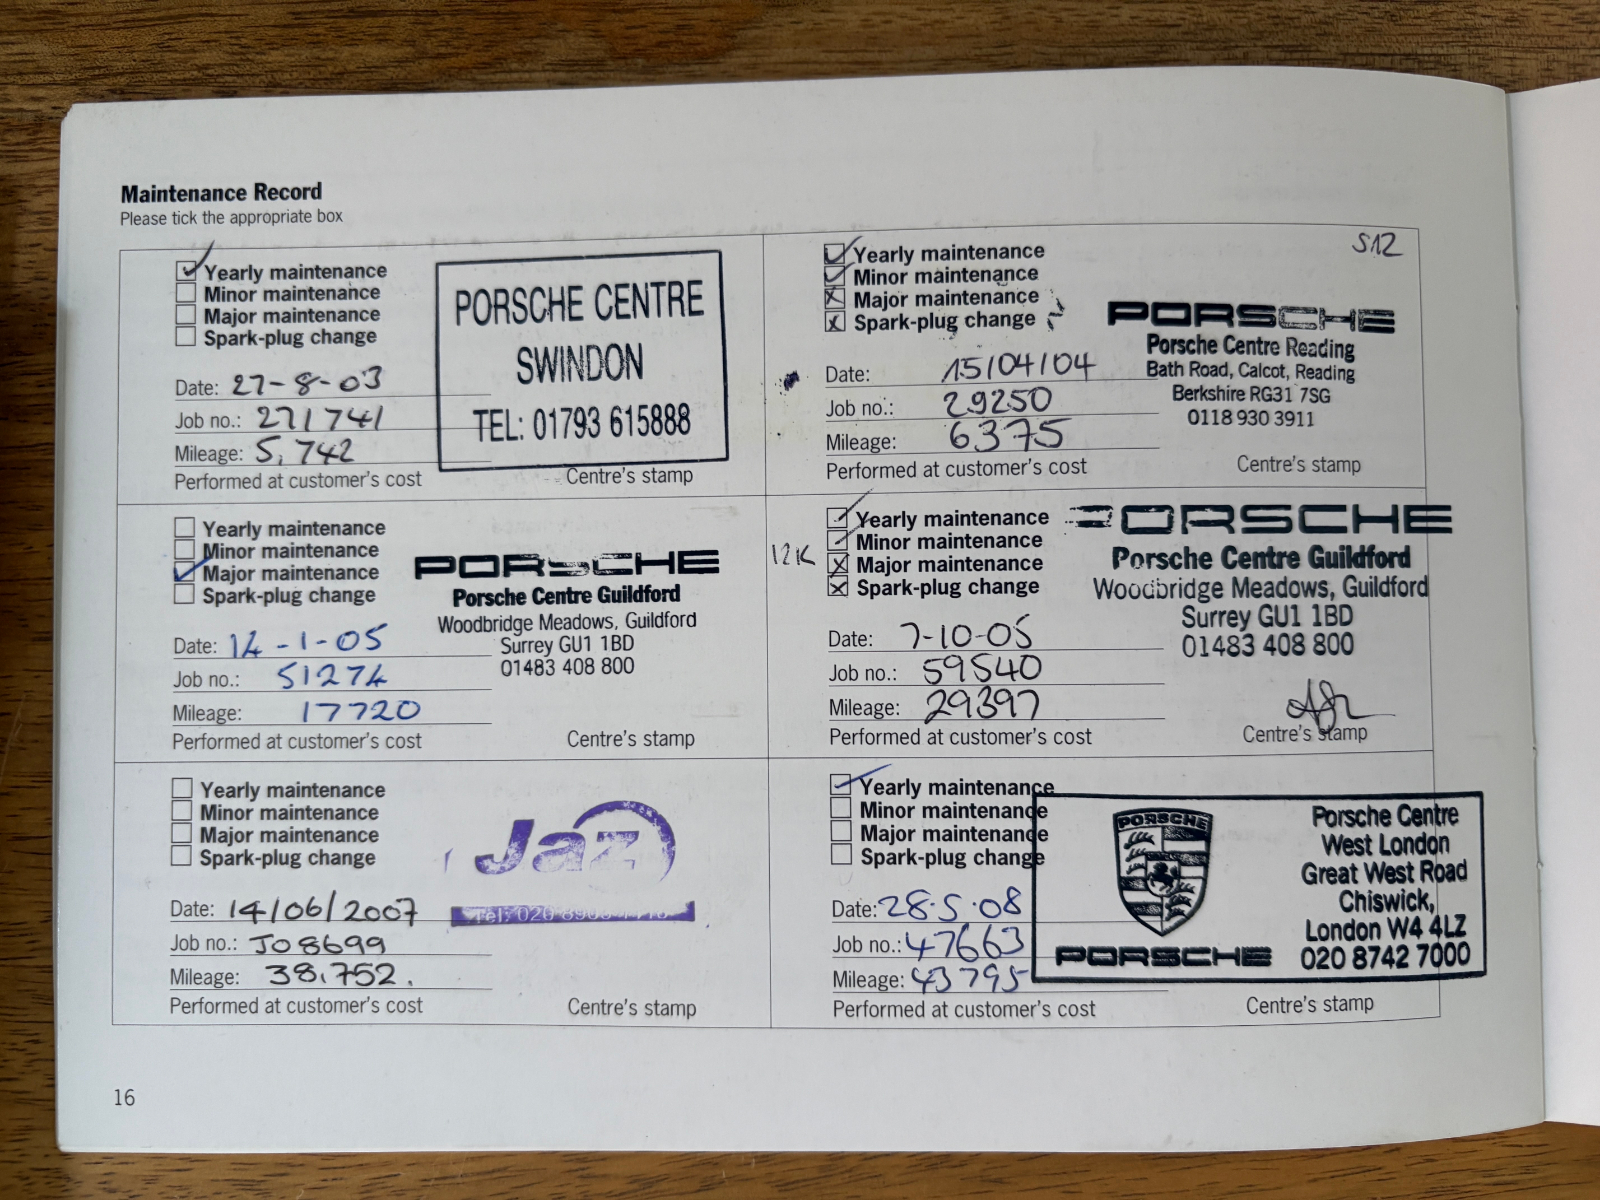 Maintenance Record
Please tick the appropriate box
Yearly maintenance
Minor maintenance
Major maintenance
Spark-plug change
Date: 27-8-03
Job no.: 271741
Mileage: 5,742
Performed at customer's cost
PORSCHE CENTRE
SWINDON
TEL: 01793 615888
Centre's stamp
S12
Yearly maintenance
Minor maintenance
Major maintenance
Spark-plug change
Date: 15/04/04
Job no.: 29250
Mileage: 6375
Performed at customer's cost
PORSCHE
Porsche Centre Reading
Bath Road, Calcot, Reading
Berkshire RG31 7SG
0118 930 3911
Centre's stamp
Yearly maintenance
Minor maintenance
Major maintenance
Spark-plug change
Date: 14-1-05
Job no.: 51274
Mileage: 17720
Performed at customer's cost
PORSCHE
Porsche Centre Guildford
Woodbridge Meadows, Guildford
Surrey GU1 1BD
01483 408 800
Centre's stamp
12K
Yearly maintenance
Minor maintenance
Major maintenance
Spark-plug change
Date: 7-10-05
Job no.: 59540
Mileage: 29397
Performed at customer's cost
PORSCHE
Porsche Centre Guildford
Woodbridge Meadows, Guildford
Surrey GU1 1BD
01483 408 800
Centre's stamp
Yearly maintenance
Minor maintenance
Major maintenance
Spark-plug change
Date: 14/06/2007
Job no.: J08699
Mileage: 38,752.
Performed at customer's cost
Jaz
Tel: 020
Centre's stamp
Yearly maintenance
Minor maintenance
Major maintenance
Spark-plug change
Date: 28·5·08
Job no.: 47663
Mileage: 43795
Performed at customer's cost
PORSCHE
PORSCHE
Porsche Centre
West London
Great West Road
Chiswick,
London W4 4LZ
020 8742 7000
Centre's stamp
16